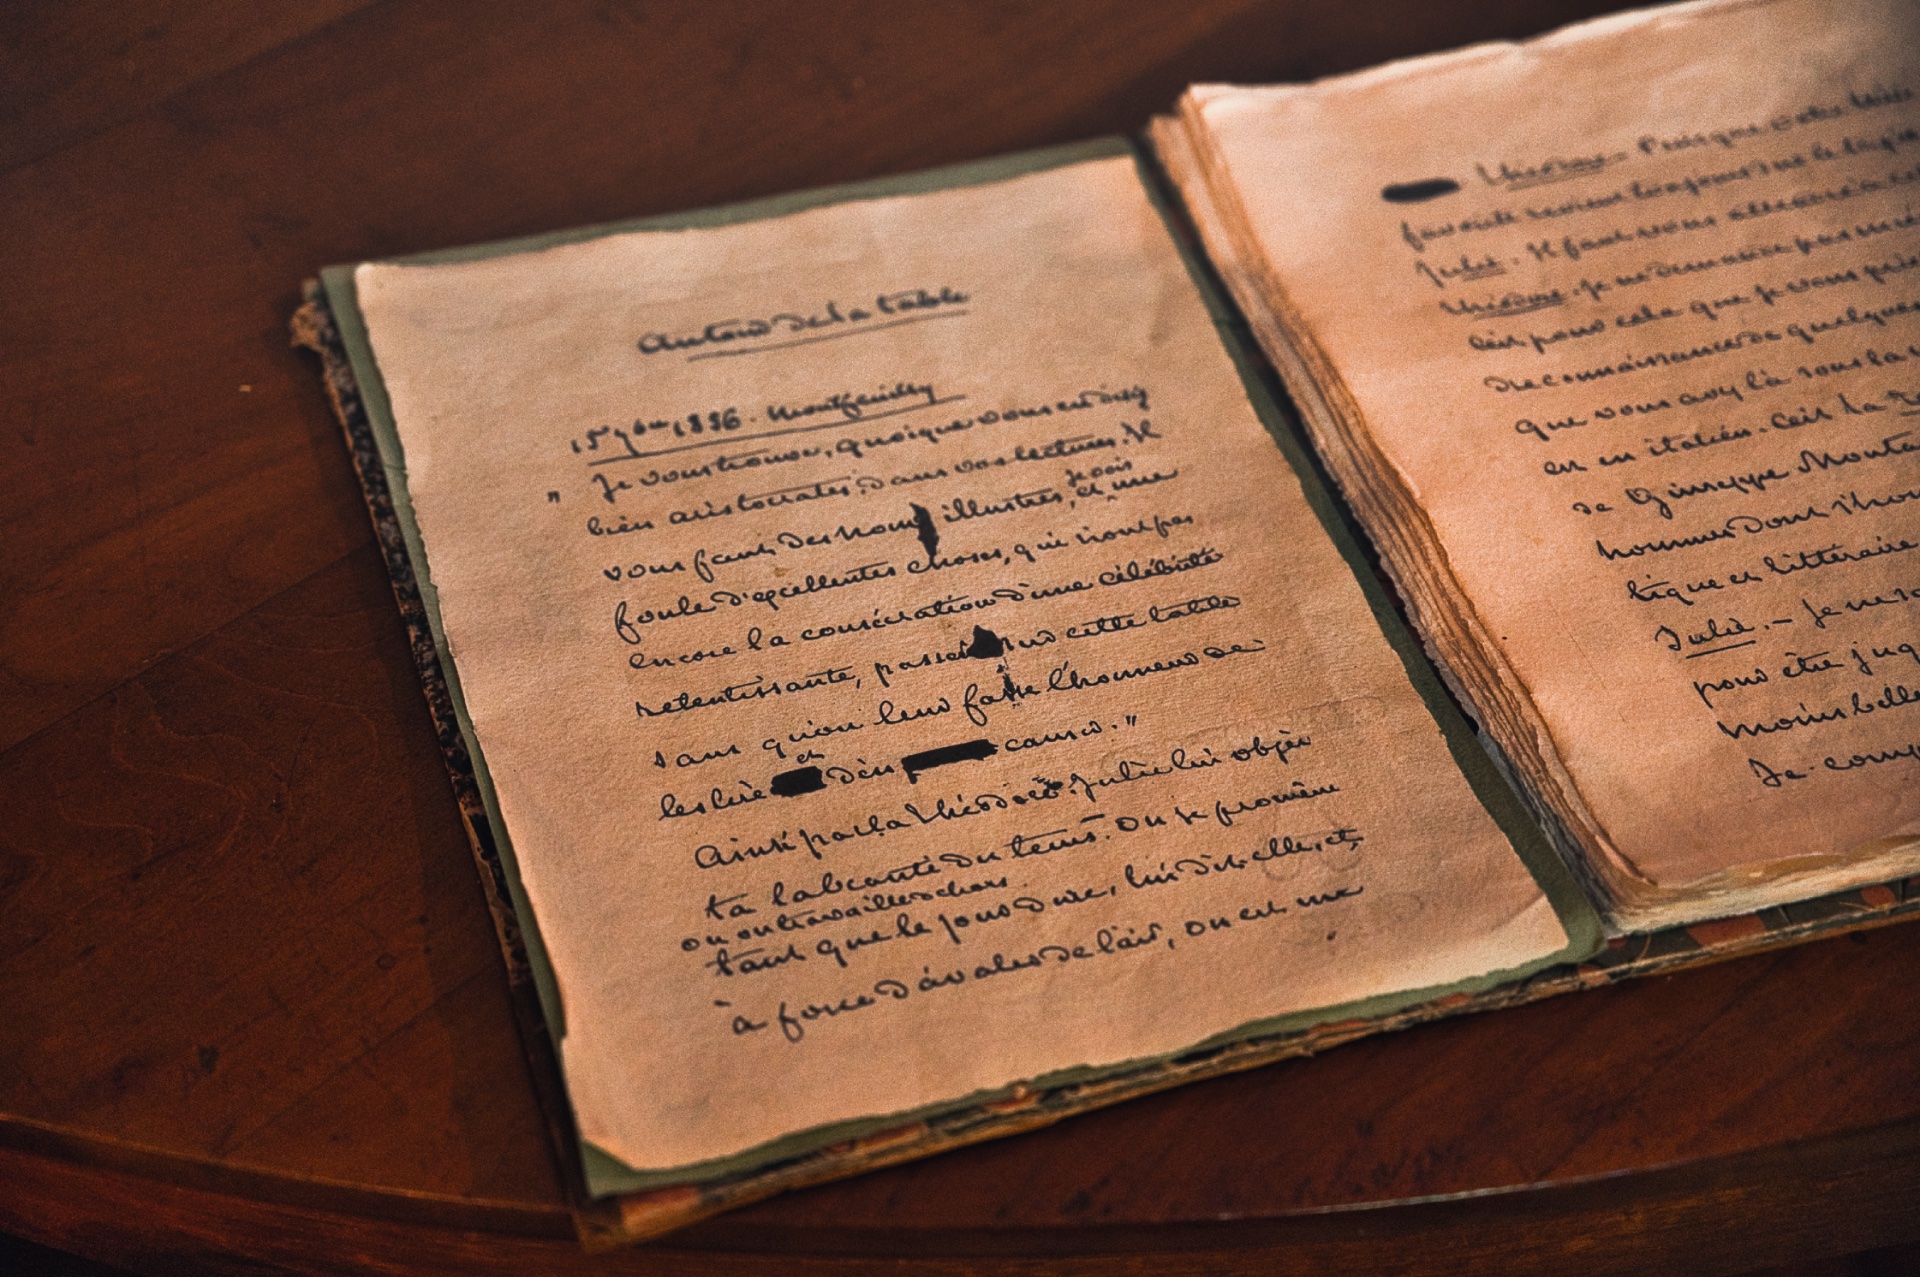 Autour de la table
15 9bre 1856. Montfeuilly
" Je vous trouve, quoique vous en disiez
bien aristocrates, dans vos lectures. Il
vous faut des noms illustres, et je vois une
foule d'excellentes choses, qui n'ont pas
encore la consécration d'une célébrité
retentissante, passer sur cette table
sans qu'on leur fasse l'honneur de
les lire et d'en causer."
Ainsi parla Théodore. Julie lui objec
ta la beauté du tems. On se promène
ou on travaille dehors
tant que le jour dure, lui dit-elle, et,
à force d'avaler de l'air, on est un
Théodore — Puisque votre
favorite revient toujours sur le tapis
Julie. Il faut vous attendre à cel
Théodore. Je ne demande pas mi
pour cela que je vous prie
de connaissance de quelques
que vous avez là sous la
est en italien. C'est la
de Giuseppe Monta
hommes dont l'ho
tique et littéraire
Julie. — Je ne
pour être jug
moins belle
Je comp